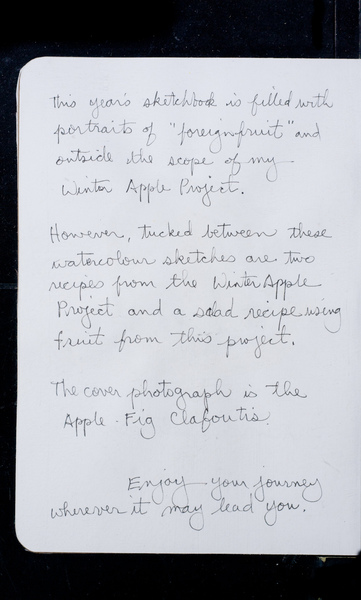 This year's sketchbook is filled with
portraits of "foreign fruit" and
outside the scope of my
Winter Apple Project.
However, tucked between these
watercolour sketches are two
recipes from the Winter Apple
Project and a salad recipe using
fruit from this project.
The cover photograph is the
Apple-Fig Clafoutis.
Enjoy your journey
wherever it may lead you.